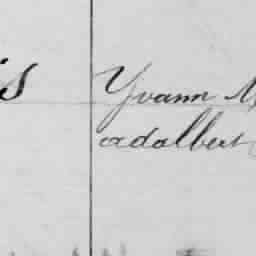 Yvann
adalbert